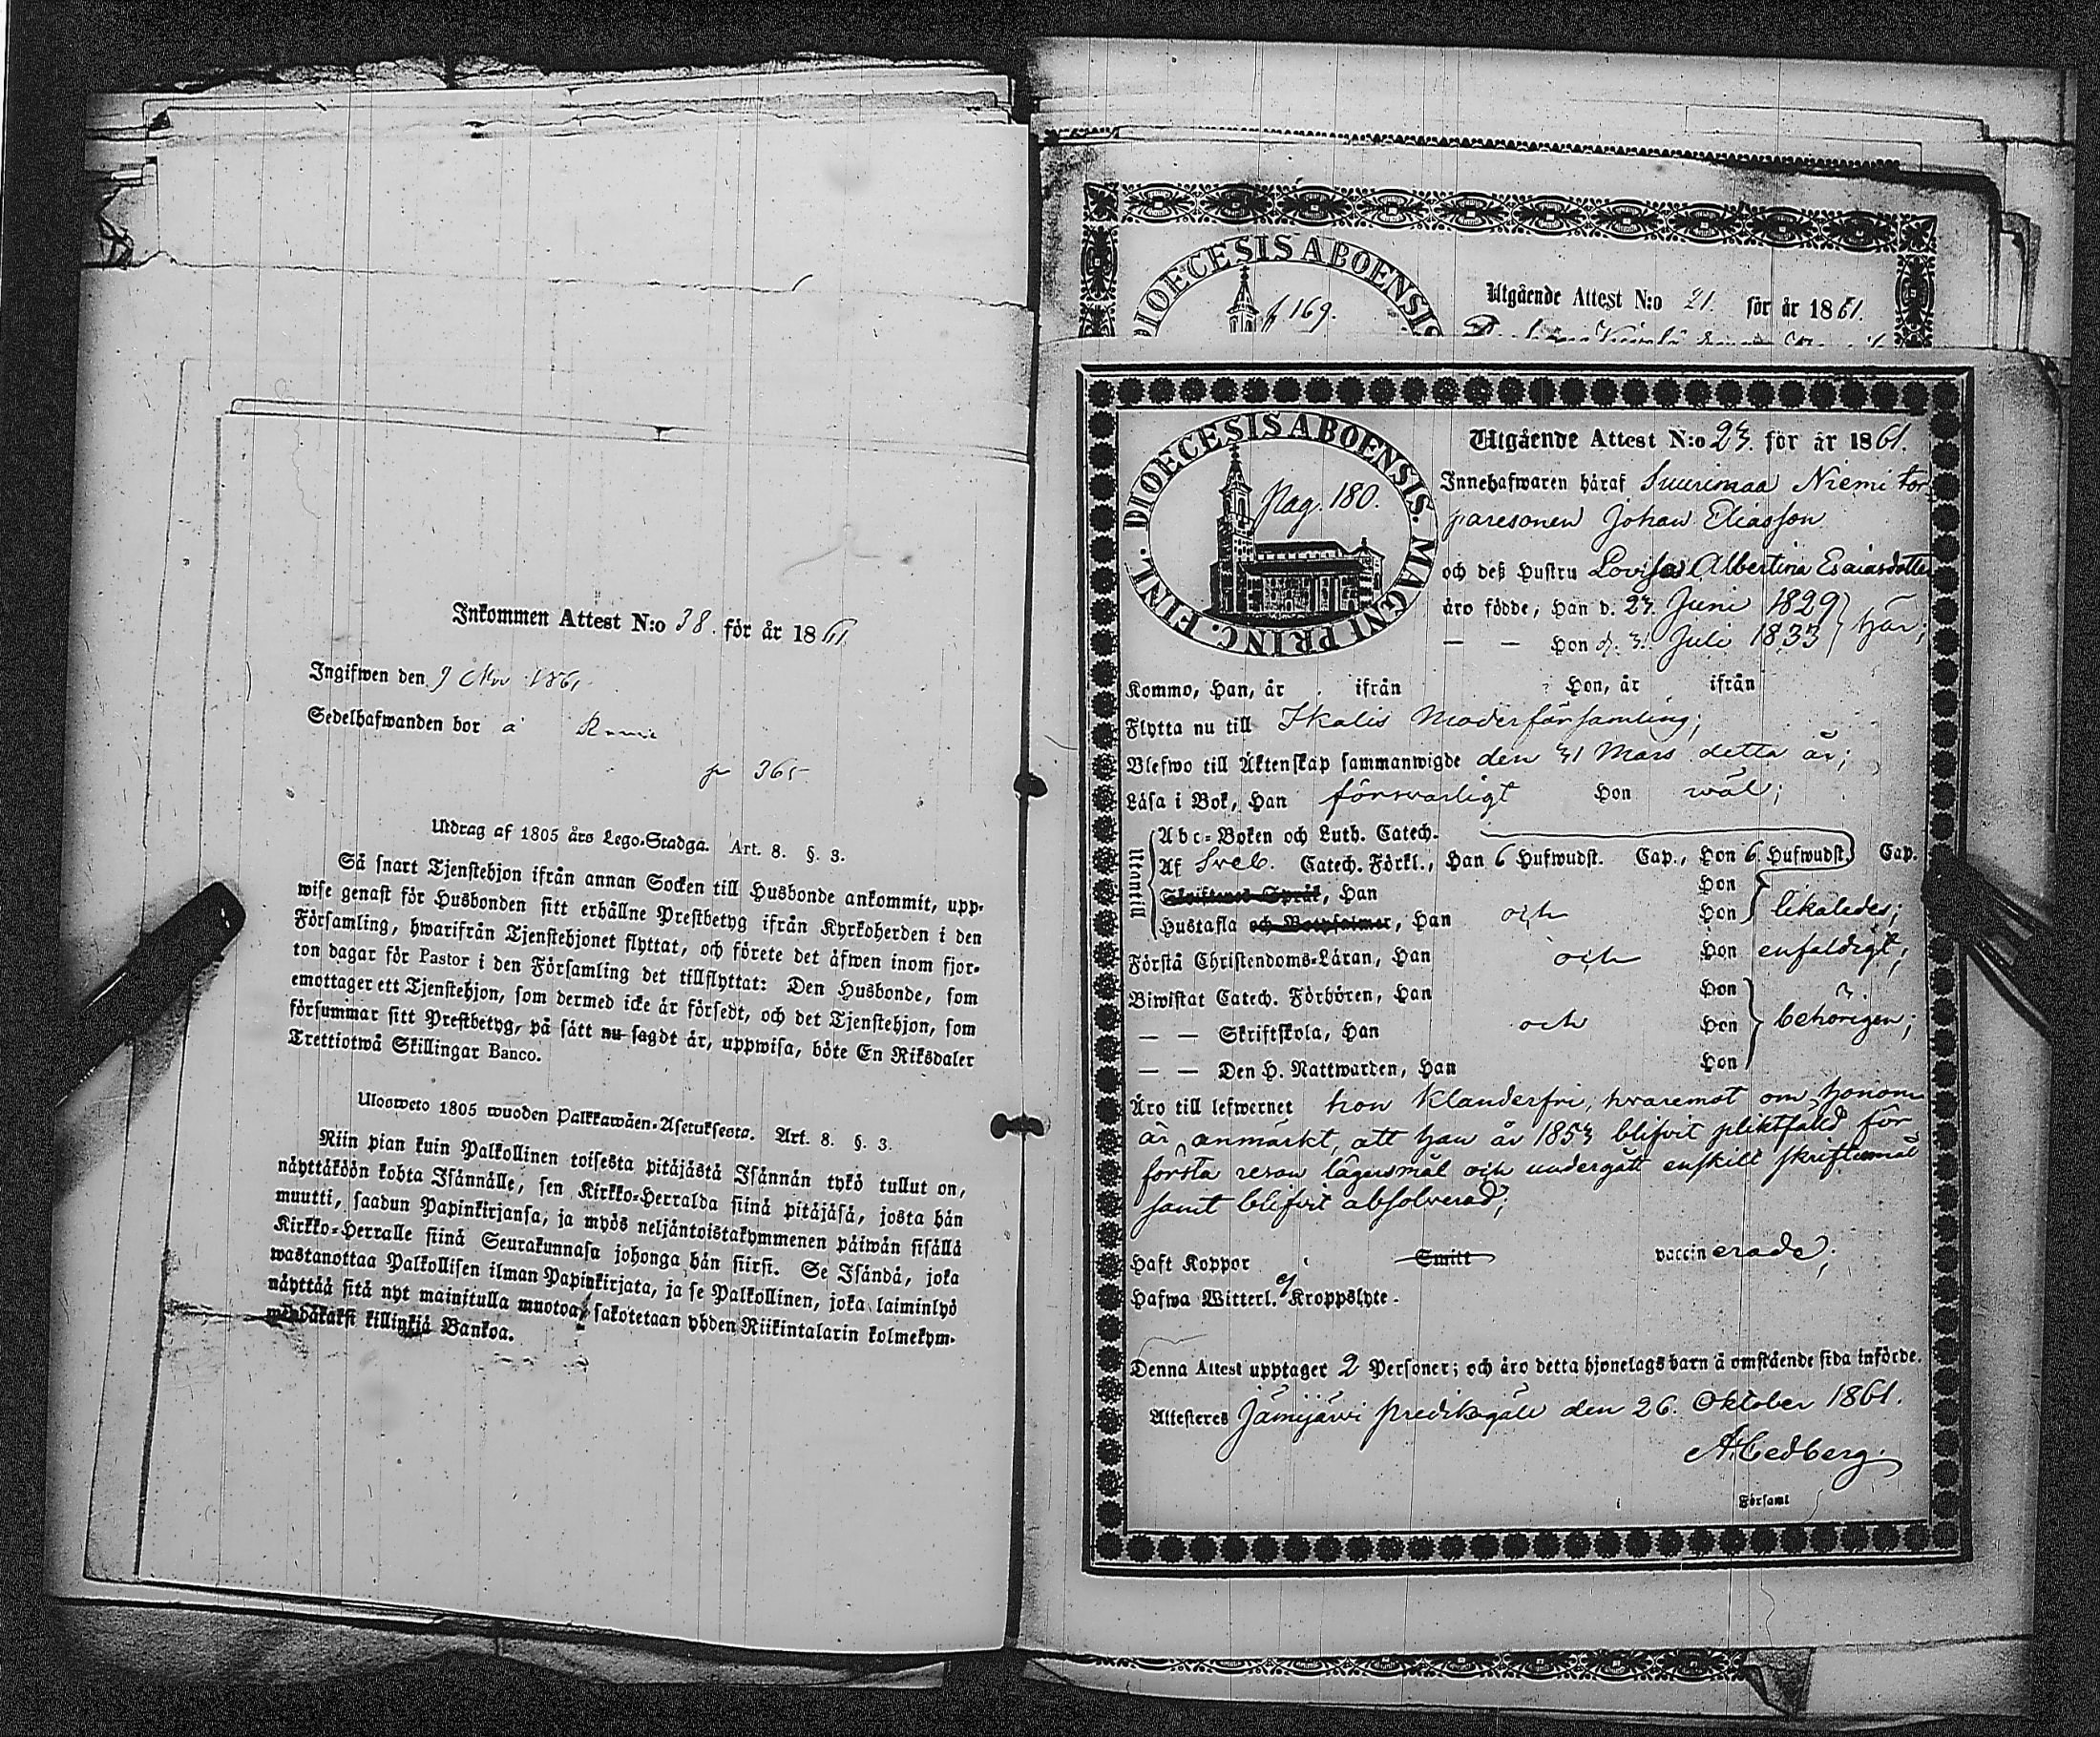 Inkommen Attest N:o 38. för år 1861
Ingifwen den 9 Nov 1861
Sedelhafwanden bor å
p 365
Utdrag af 1805 års Lego-Stadga. Art. 8. §. 3.
Så snart Tjenstehjon ifrån annan Socken till Husbonde ankommit, upp-
wise genast för Husbonden sitt erhållne Prestbetyg ifrån Kyrkoherden i den
Församling, hwarifrån Tjenstehjonet flyttat, och förete det äfwen inom fjor-
ton dagar för Pastor i den Församling det tillflyttat: Den Husbonde, som
emottager ett Tjenstehjon, som dermed icke är försedt, och det Tjenstehjon, som
försummar sitt Prestbetyg, på sätt nu sagdt är, uppwisa, böte En Riksdaler
Trettiotwå Skillingar Banco.
Ulosweto 1805 wuoden Palkkawäen-Asetuksesta. Art. 8. §. 3.
Niin pian kuin Palkollinen toisesta pitäjästä Isännän tykö tullut on,
näyttäköön kohta Isännälle, sen Kirkko-Herralda siinä pitäjäsä, josta hän
muutti, saadun Papinkirjansa, ja myös neljäntoistakymmenen päiwän sisällä
Kirkko-Herralle siinä Seurakunnasa johonga hän siirsi. Se Isändä, joka
wastanottaa Palkollisen ilman Papinkirjata, ja se Palkollinen, joka laiminlyö
näyttää sitä nyt mainitulla muotoa, sakotetaan yhden Riikintalarin kolmekym-
mendäkaksi killinkiä Bankoa.
DIOECESIS ABOENSIS
p 169.
Utgående Attest N:o 21. för år 1861.
DIOECESIS ABOENSIS. MAGNI PRINC. FINL.
Pag. 180.
Utgående Attest N:o 23. för år 1861.
Innehafwaren häraf Suurimaa Niemi tor-
paresonen Johan Eliasson
och deß Hustru Lovisa Albertina Esaiasdotter
äro födde, Han d. 23 Juni 1829 } här;
— — Hon d. 3. Juli 1833
Kommo, Han, år ifrån Hon, år ifrån
Flytta nu till Ikalis Moderförsamling;
Blefwo till Äktenskap sammanwigde den 31 Mars detta år;
Läsa i Bok, Han försvarligt Hon wäl;
Utantill
Abc-Boken och Luth. Catech.
Af Sveb. Catech. Förkl., Han 6 Hufwudst. Cap., Hon 6 Hufwudst. Cap.
Skriftenes Språk, Han Hon
Hustafla och Botpsalmer, Han och Hon likaledes;
Förstå Christendoms-Läran, Han och Hon enfaldigt;
Biwistat Catech. Förhören, Han Hon
— — Skriftskola, Han och Hon behörigen;
— — Den H. Nattwarden, Han Hon
Äro till lefwernet hon klanderfri, hvaremot om honom
är anmärkt, att han år 1853 blifvit pliktfälld för
första resan lägersmål och undergått enskilt skriftermål
samt blifvit absolverad;
Haft Koppor Smitt vaccinerade;
Hafwa Witterl. ej Kroppslyte.
Denna Attest upptager 2 Personer; och äro detta hjonelags barn å omstående sida införde.
Attesteres Jämijärvi prediksgäll den 26. Oktober 1861.
A Hedberg.
Församl